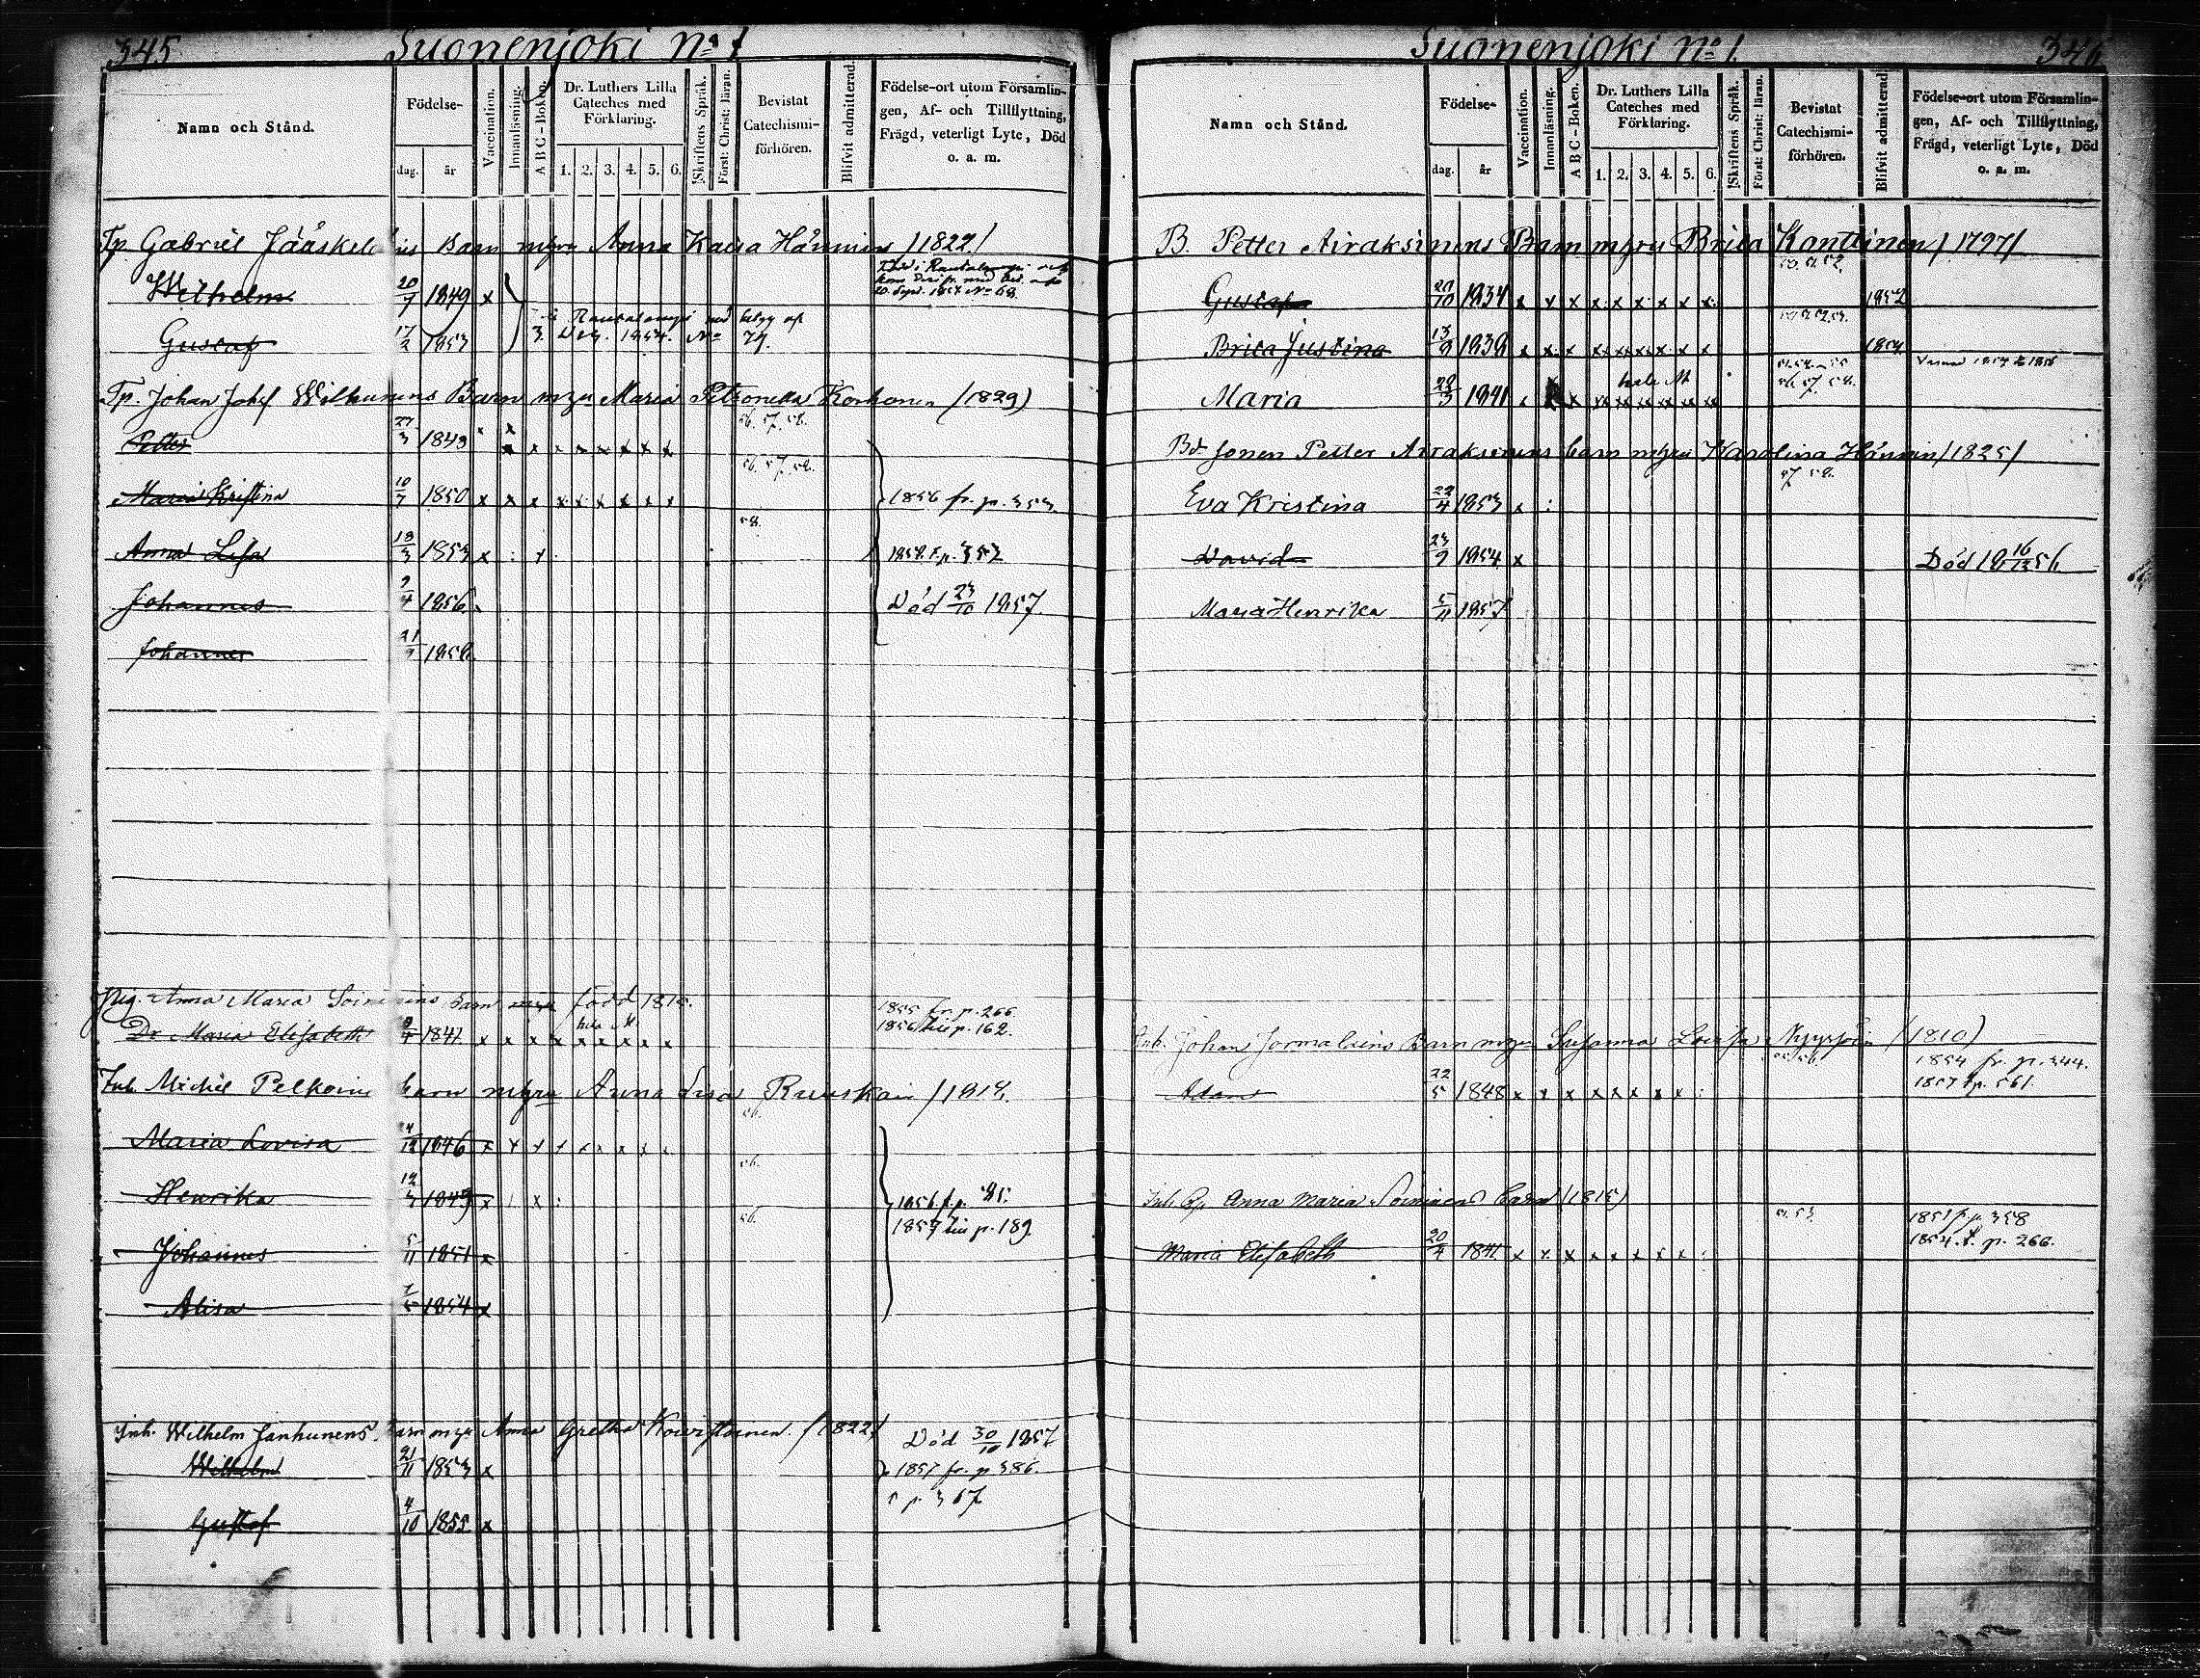 345 Suonenjoki No 1
Namn och Stånd.
Födelse-
dag. år
Vaccination.
Innanläsning.
A B C - Boken.
Dr. Luthers Lilla
Cateches med
Förklaring.
1. 2. 3. 4. 5. 6.
Skriftens Språk.
Först: Christ: läran.
Bevistat
Catechismi-
förhören.
Blifvit admitterad.
Födelse-ort utom Församlin-
gen, Af- och Tillflyttning,
Frägd, veterligt Lyte, Död
o. a. m.
Tp. Gabriel Jääskeläinens Barn mgru Anna Kaisa Hänninen /1822/
Wilhelm 20/7 1849 x
Gustaf 17/2 1853
Tp. Johan Johs. Wilhunens Barn mgru Maria Petronella Korhonen (1829)
56. 57. 58.
Petter 27/3 1843 x x x x x x x x
56. 57. 58.
Maria Kristina 10/7 1850 x x x x x x x x x 1856 fr. p. 353
58.
Anna Lisa 18/3 1853 x 1858. t.p. 352
Johannes 9/4 1856. Död 23/10 1857.
Johannes 21/9 1858.
Pig. Anna Maria Soininens barn mgru född 1815.
1855 fr. p. 266
Dr Maria Elisabeth 4 1841 x x x x x x x x x 1856 till p. 162.
Inh. Michel Pelkonens barn mgru Anna Lisa Ruuskain /1817.
56.
Maria Lovisa 12 1846 x
56.
Henrika 12/3 1849 x 1856 f.p. 85.
56.
1857 till p. 189.
Johannes 5/11 1851 x
Alisa 7/5 1854 x
Inh. Wilhelm Janhunens barn mgru Anna Gretha Koivistoinen. /1822/
Död 30/10 1857
Wilhelm 21/11 1853 x 1857 fr. p 386.
p. 367
Gustaf 4/10 1855. x
Suonenjoki No 1. 346
Namn och Stånd.
Födelse-
dag. år
Vaccination.
Innanläsning.
A B C - Boken.
Dr. Luthers Lilla
Cateches med
Förklaring.
1. 2. 3. 4. 5. 6.
Skriftens Språk.
Först: Christ: läran.
Bevistat
Catechismi-
förhören.
Blifvit admitterad
Födelse-ort utom Församlin-
gen, Af- och Tillflyttning,
Frägd, veterligt Lyte, Död
o. a. m.
B. Petter Airaksinens Barn mgru Brita Kanttinen /1797/
Gustaf 20/10 1834 x x x x x x x x x 1852
Brita Justina 13/9 1838 x x x x x x x x x 1854
Maria 28/3 1841
Bd. Sonen Petter Airaksinens barn mgru Karolina Hännin /1825/
57 58.
Eva Kristina 22/4 1853 x
David 23/9 1854 x Död 18 16/12 56
Maria Henrika 5/11 1857
Inh. Johan Jormalains Barn mgru Susanna Lovisa (1810)
1854 fr. p. 344.
Adam 22/5 1848 x x x x x x x x 1857 t.p. 561.
Inh. Anna Maria Soininens barn (1815)
Maria Elisabeth 20/4 1841 x x x x x x x x 1854. t. p. 266.